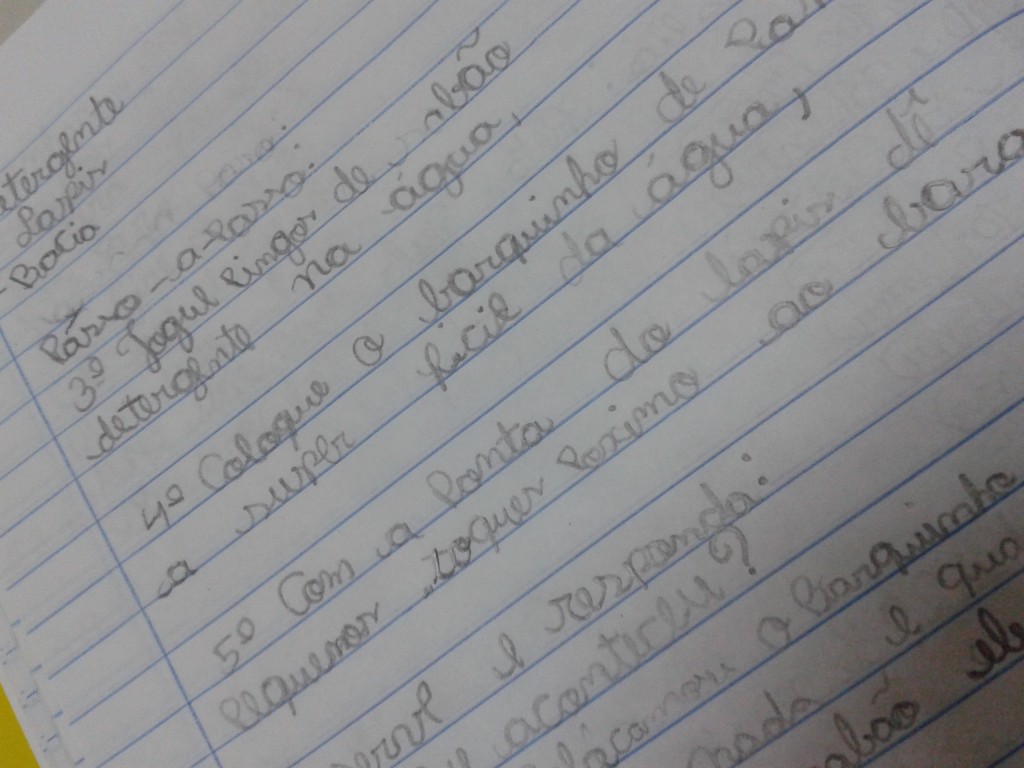 detergente
Lapis
- Bacia
Passo-a-passo:
3º Jogue pingos de sabão
detergente na água,
4º Coloque o barquinho de pa
a super ficie da água,
5º Com a ponta do lapis dê
pequenos toques poximo ao barq
e responda:
aconteceu?
colocamos o barquinho
nada e qua
sabão ele